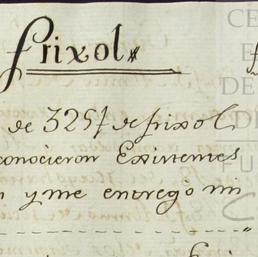 frixol
de 325 f de frixol
conocieron Existentes
y me entrego mi